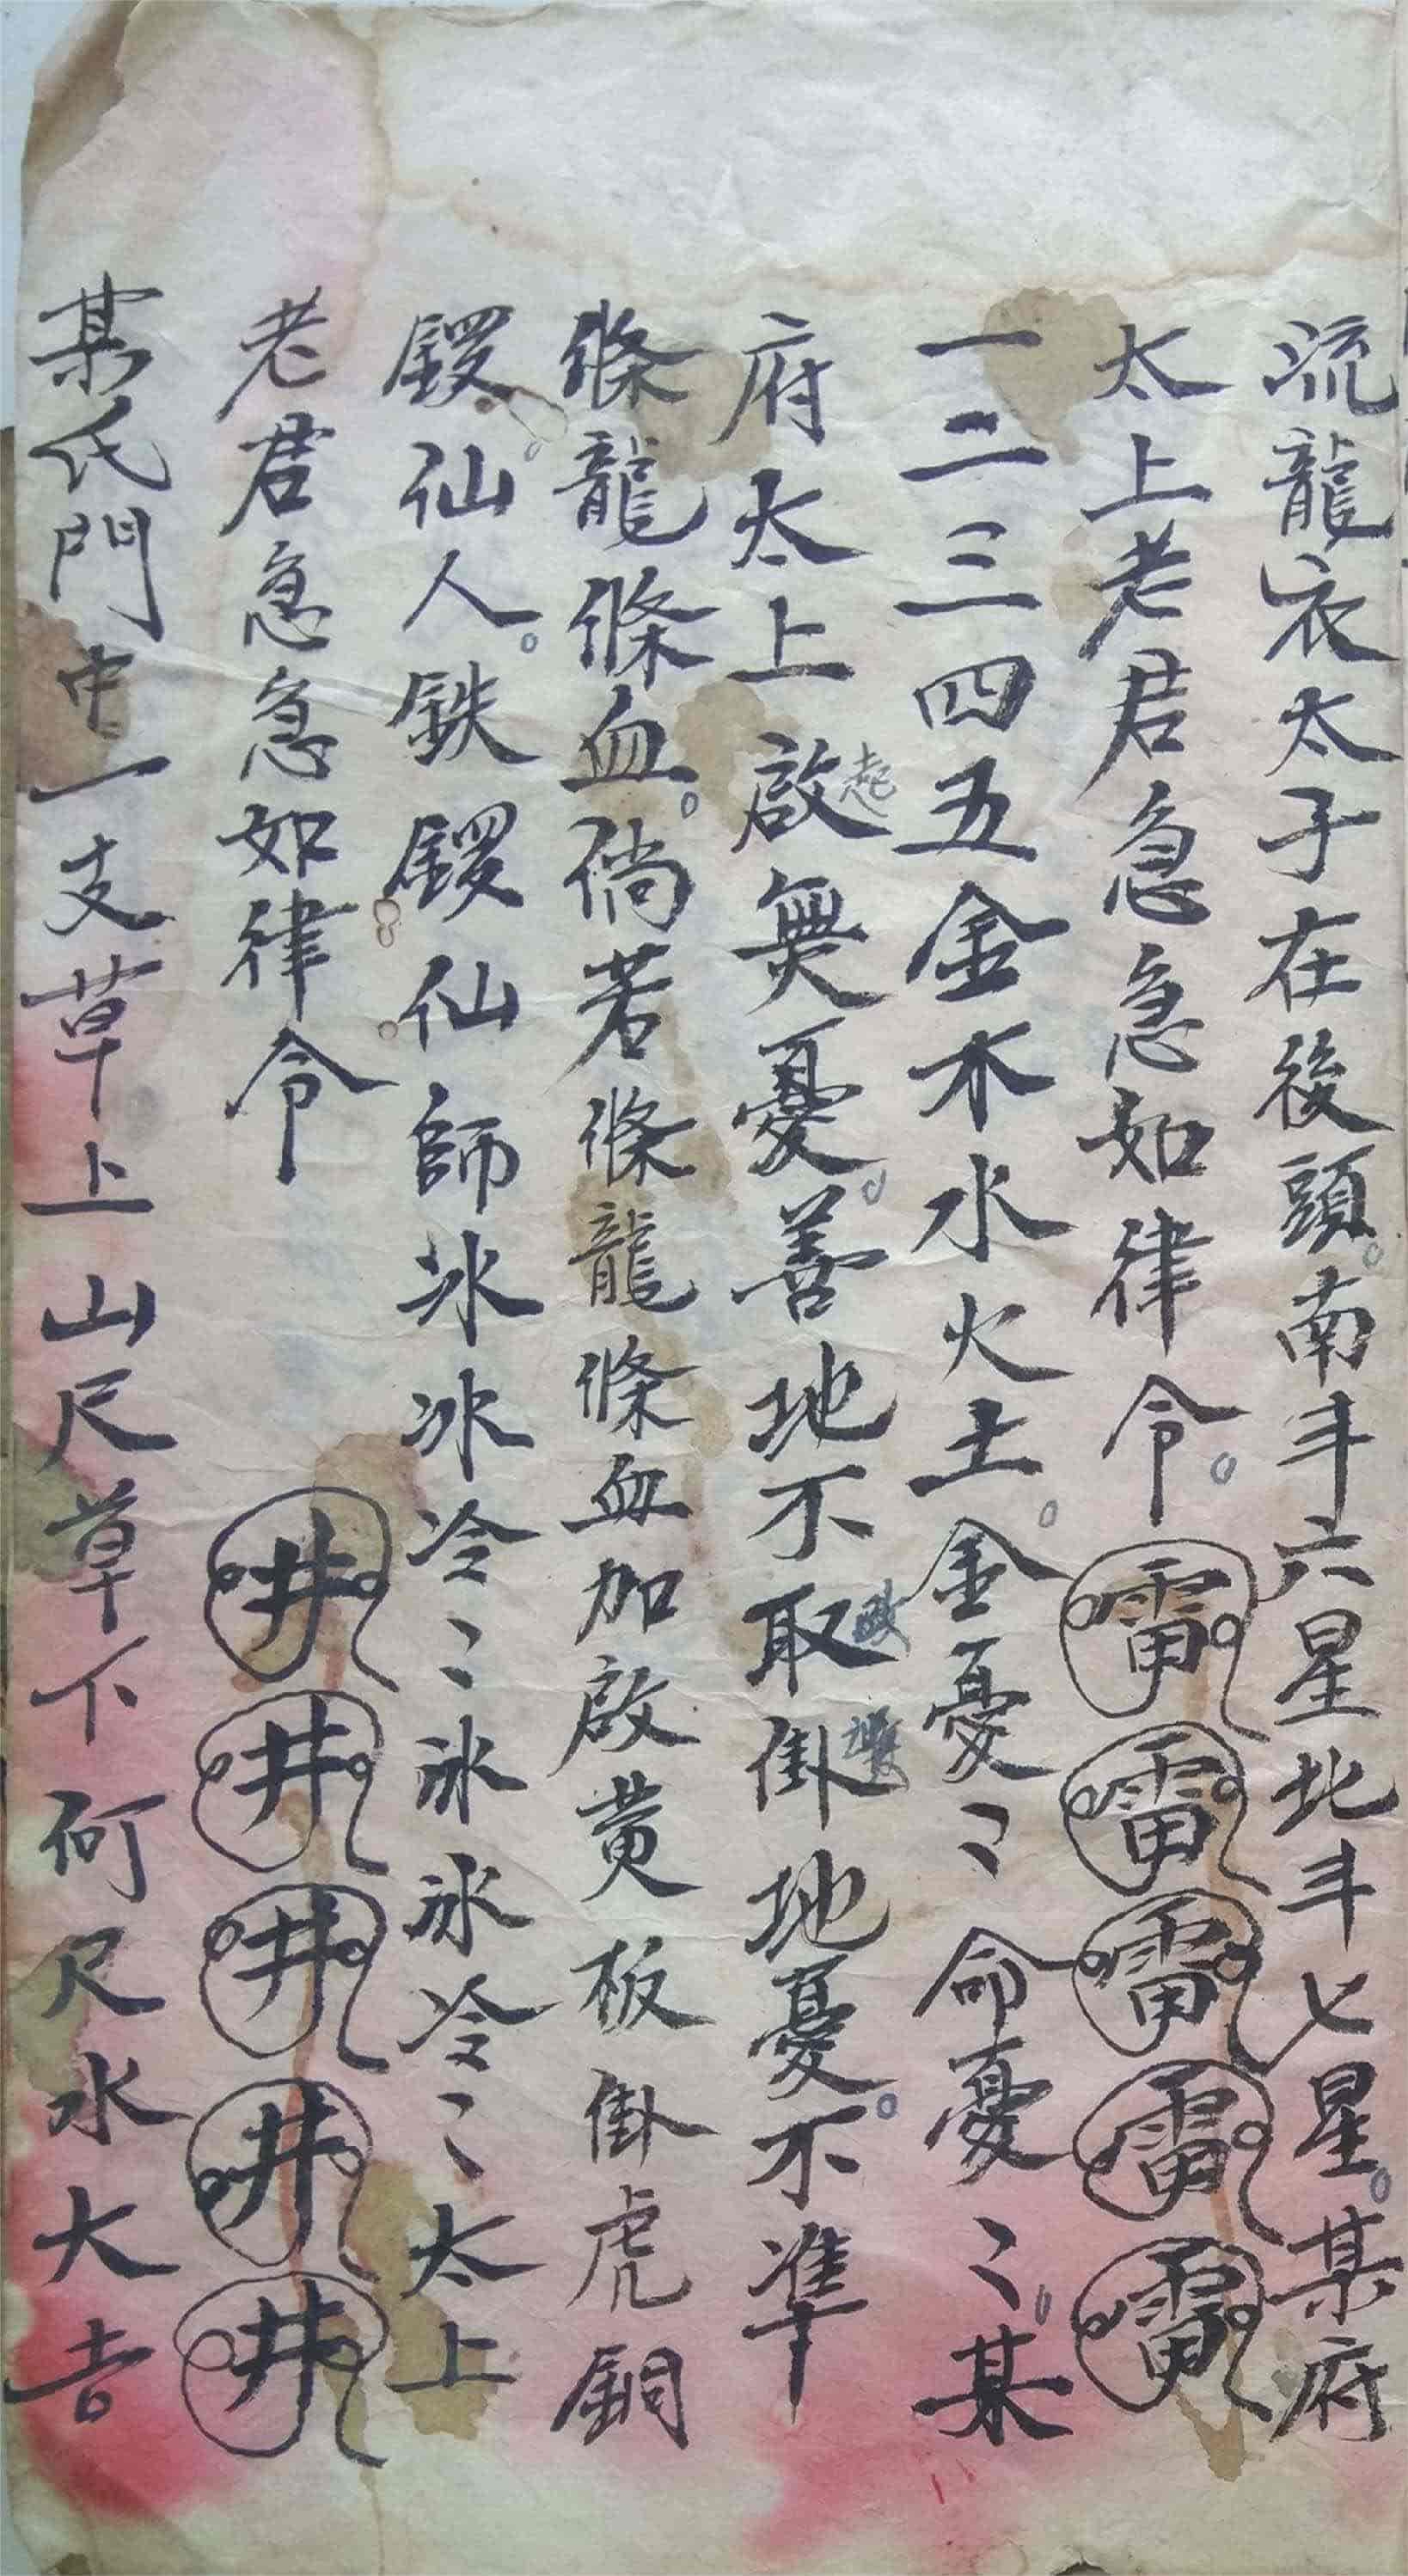 流龍衣太子在後頭。南斗六星北斗七星。某府
太上老君急急如律令。雷雷雷雷雷
一二三四五金木水火土。金憂々命憂々。某
府太上啟起無憂。善地不取改掛地憂。不準
條龍條血。倘若條龍條血加啟黃板掛虎銅
鍐仙。人。鉄鍐仙師氷氷冷々氷氷冷々太上
老君急急如律令 井井井井井
某氏門中一支草上山尺草下何尺水大吉